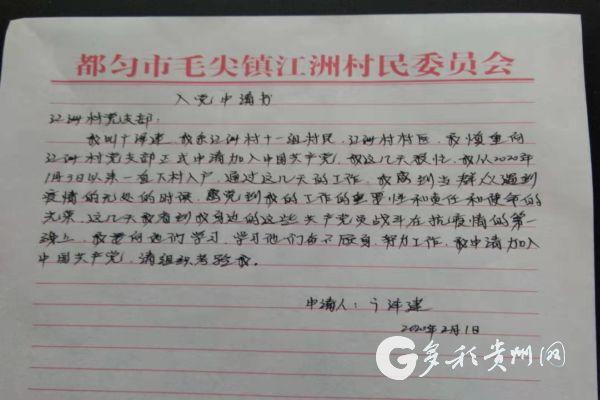 都匀市毛尖镇江洲村民委员会
入党申请书
江洲村党支部:
我叫 建,我系江洲村十一组村民,江洲村村医,我慎重向
江洲村党支部正式申请加入中国共产党,我这几天 ,我从2020年
1月3日以来一直下村入户,通过这几天的工作,我感到当群众遇到
疫情的无处的时候,感觉到我的工作的重要性和责任和使命的
光荣,这几天我看到我身边的这些共产党员战斗在抗疫情的第一
线上,我要向他们学习,学习他们奋不顾身,努力工作,我申请加入
中国共产党,请组织考验我。
申请人: 建
2020年2月1日
多彩贵州网